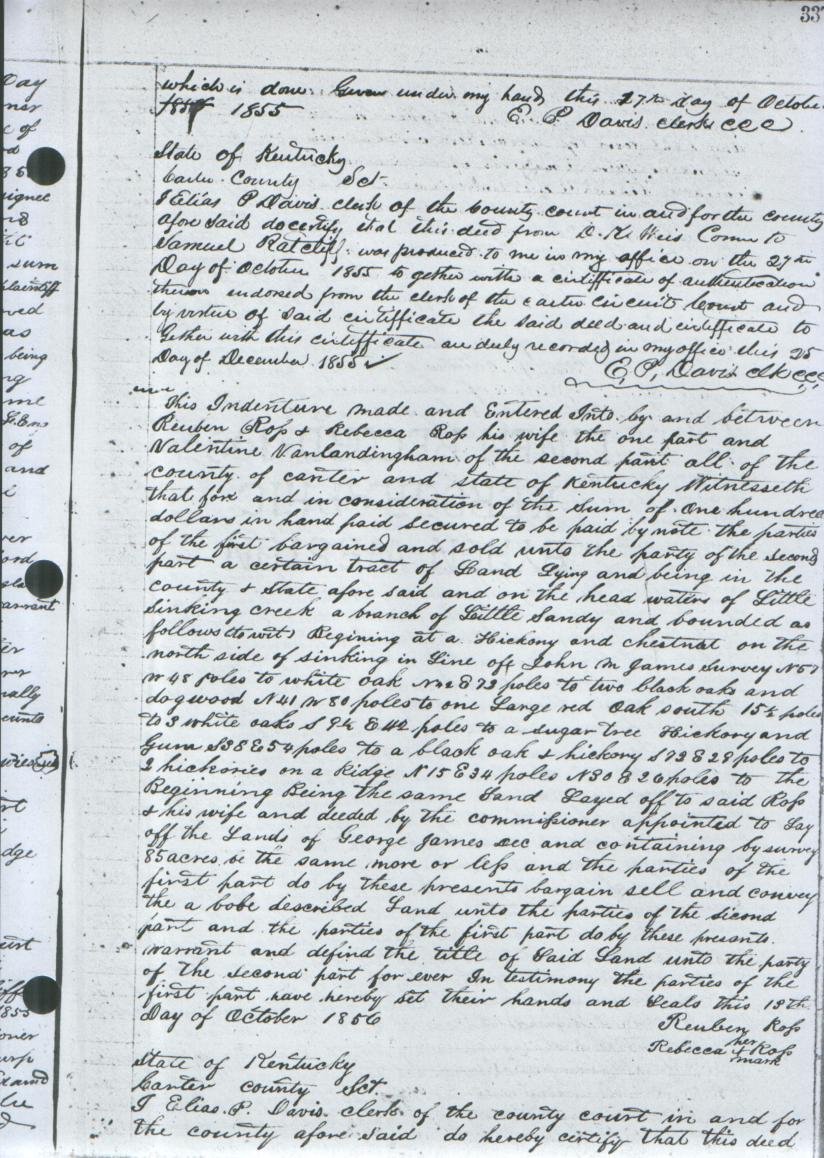 337
which is done. Given under my hand this 27th day of October
1855
E. P. Davis clerk CCC
State of Kentucky
Carter County Sct.
I Elias P Davis clerk of the County court in and for the county
afore said do certify that this deed from D. K. Weis Comr to
Samuel Ratcliff was produced to me in my office on the 27th
Day of October 1855 to gether with a certifficate of authentication
theron endorsed from the clerk of the carter circuit Court and
by virtue of said certifficate the said deed and certifficate to
Gether with this certifficate are duly recorded in my office this 25
Day of December 1855
E. P. Davis Clk CCC
This Indenture made and Entered Into by and between
Reuben Ross & Rebecca Ross his wife the one part and
Valentine Vanlandingham of the second part all of the
county of carter and state of Kentucky Witnesseth
that for and in consideration of the Sum of One hundred
dollars in hand paid secured to be paid by note the parties
of the first bargained and sold unto the party of the second
part a certain tract of Land Lying and being in the
county & State afore said and on the head waters of Little
Sinking creek a branch of Little Sandy and bounded as
follows (to wit) Begining at a Hickory and chestnut on the
north side of sinking in Line off John M James Survey N57
W 48 poles to white oak E 73 poles to two black oaks and
dogwood N41 W 80 poles to one Large red Oak south 15½ poles
to 3 white oaks S 9½ E 42 poles to a sugar tree Hickory and
Gum S38 E 54 poles to a black oak & hickory S 72 E 28 poles to
2 hickories on a Ridge N15 E 34 poles N80 E 26 poles to the
Beginning Being the same Land Layed off to said Ross
& his wife and deeded by the commissioner appointed to Lay
off the Lands of George James Dec and containing by survey
85 acres be the same more or less and the parties of the
first part do by these presents bargain sell and convey
the a bobe described Land unto the parties of the second
part and the parties of the first part do by these presants
warrant and defind the title of Said Land unto the party
of the second part for ever In testimony the parties of the
first part have hereby set their hands and Seals this 18th
Day of October 1856
Reuben Ross
her
Rebecca + Ross
mark
State of Kentucky
Carter county Sct.
I Elias. P. Davis clerk of the county court in and for
the county afore said do hereby certify that this deed